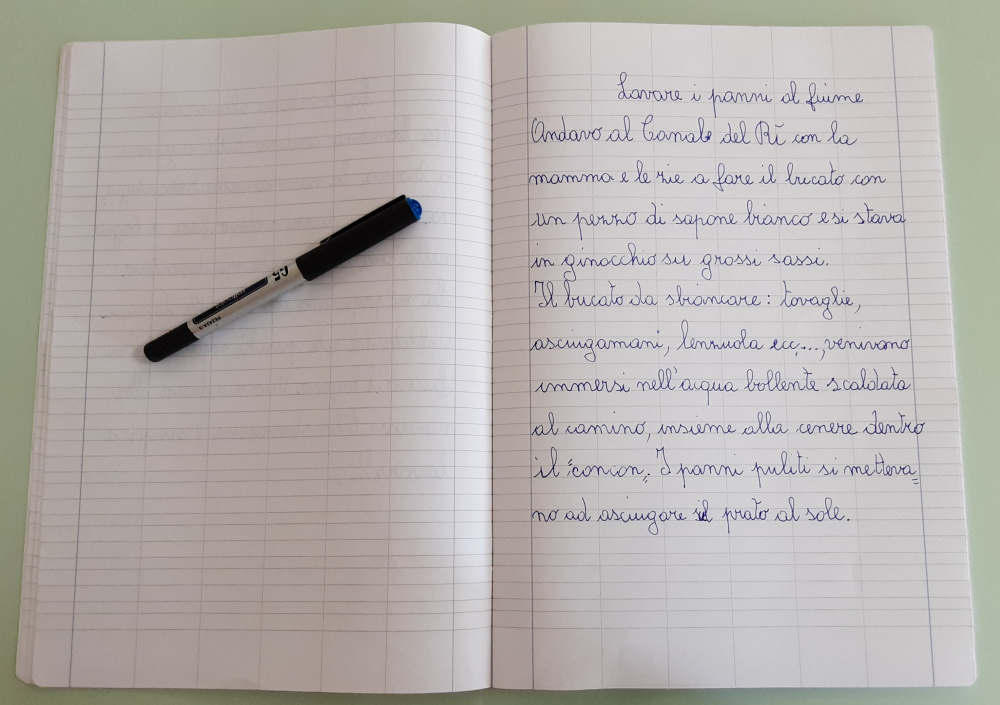 Lavare i panni al fiume
Andavo al Canale del Rì con la
mamma e le zie a fare il bucato con
un pezzo di sapone bianco e si stava
in ginocchio su grossi sassi.
Il bucato da sbiancare: tovaglie,
asciugamani, lenzuola ecc,..., venivano
immersi nell'acqua bollente scaldata
al camino, insieme alla cenere dentro
il "concon". I panni puliti si metteva=
no ad asciugare sul prato al sole.
G-5